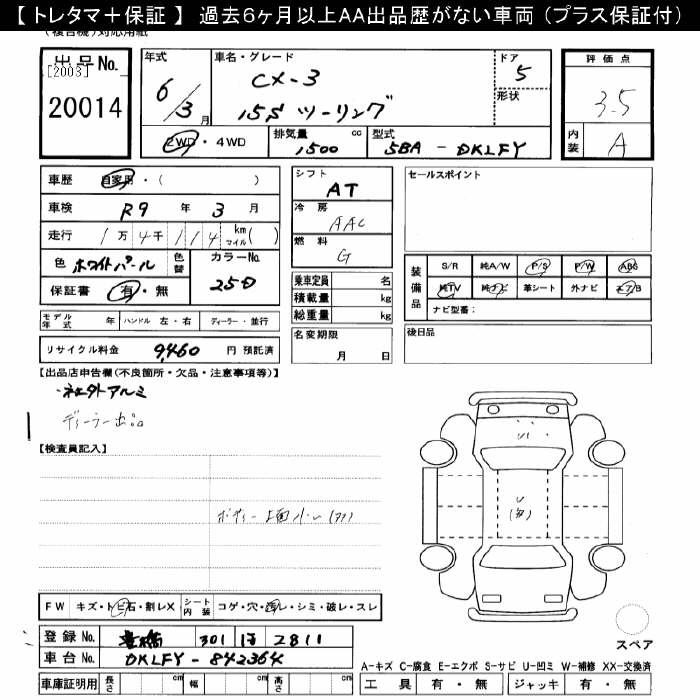 【トレタマ+保証】 過去6ヶ月以上AA出品歴がない車両（プラス保証付）
（複合機）対応用紙
出品No. [2003]
20014
年式 6/3月
車名・グレード CX-3
15S ツーリング
ドア 5
形状
評価点 3.5
内装 A
2WD・4WD
排気量 1500 cc
型式 5BA - DKLFY
車歴 自家用・( )
車検 R9年 3月
走行 1万4千114 km マイル( )
色 ホワイトパール 色替
カラーNo. 25D
保証書 有・無
モデル年式 年 ハンドル 左・右 ディーラー・並行
リサイクル料金 9,460 円 預託済
シフト AT
冷房 AAC
燃料 G
乗車定員 名
積載量 kg
総重量 kg
名変期限 月 日
セールスポイント
装備品
S/R 純A/W P/S P/W ABS
純TV 純ナビ 革シート 外ナビ エアB
ナビ型番：
後日品
【出品店申告欄(不良箇所・欠品・注意事項等)】
・社外アルミ
ディーラー出品
【検査員記入】
ボディー上面小U(タワ)
U
U
(タワ)
FW キズ・トビ石・割レX シート内装 コゲ・穴・汚レ・シミ・破レ・スレ
登録No. 豊橋 301 ほ 2811
車台No. DKLFY - 842364
車庫証明用 長さ cm 幅 cm 高さ cm
スペア
A-キズ C-腐食 E-エクボ S-サビ U-凹ミ W-補修 XX-交換済
工具 有・無 ジャッキ 有・無